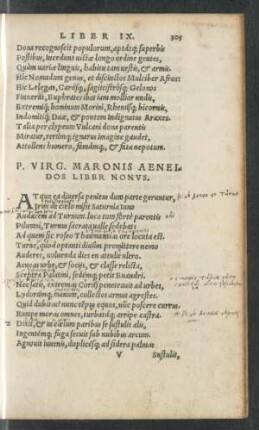 LIBER IX. 305
Dona recognoscit populorum, aptatq; superbis
Postibus, incedunt victæ longo ordine gentes,
Quàm variæ linguis, habitu tam vestis, & armis.
Hic Nomadum genus, et discinctos Mulciber Afros:
Hic Lelegas, Carasq;, sagittiferosq; Gelonos
Finxerat, Euphrates ibat iam mollior undis,
Extremiq; hominum Morini, Rhenusq; bicornis,
Indomitiq; Dahæ, & pontem indignatus Araxes.
Talia per clypeum Vulcani dona parentis
Miratur, rerumq; ignarus imagine gaudet,
Attollens humero, famamq;, & fata nepotum.
P. VIRG. MARONIS AENEI-
DOS LIBER NONVS.
ATque ea diversa penitus dum parte geruntur,
Irim de cœlo misit Saturnia Iuno
Audacem ad Turnum. luco tum fortè parentis
Pilumni, Turnus sacrata valle sedebat:
Ad quem sic roseo Thaumantias ore locuta est.
Turne, quod optanti divûm promittere nemo
Auderet, volvenda dies en attulit ultro.
Aeneas urbe, & socijs, & classe relicta,
Sceptra Palatini, sedemq; petit Euandri.
Nec satis, extremas Corithi penetravit ad urbes,
Lydorumq; manum, collectos armat agrestes.
Quid dubitas? nunc tempus equos, nūc poscere currus.
Rumpe moras omnes, turbataq; arripe castra.
Dixit, & in cœlum paribus se sustulit alis,
Ingentemq; fuga secuit sub nubibus arcum.
Agnovit iuvenis, duplicesq; ad sidera palmas
V Sustulit,